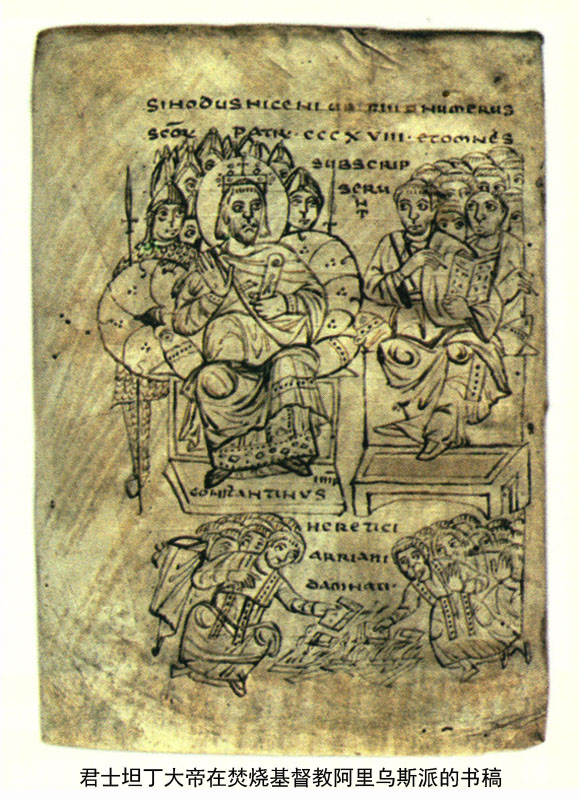 SINODUS NICENI NUMERUS
SCŌR PATR · CCCXVIII · ET OMNES
SUBSCRIP
SERU
NT
CONSTANTINUS IMP
HERETICI
ARRIANI
DAMNATI ·
君士坦丁大帝在焚烧基督教阿里乌斯派的书稿